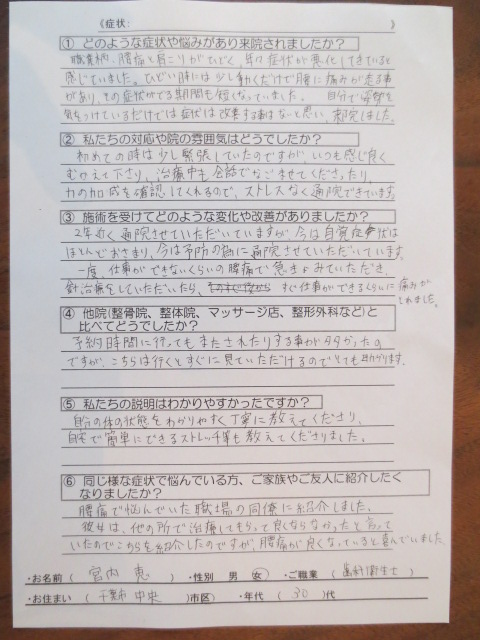 《症状: 》
① どのような症状や悩みがあり来院されましたか？
職業柄、腰痛と肩こりがひどく、年々症状が悪化してきていると
感じていました。ひどい時には少し動くだけで腰に痛みが走る事
があり、その症状がでる期間も短くなっていました。 自分で姿勢を
気をつけているだけでは症状は改善する事はないと思い、来院しました。
② 私たちの対応や院の雰囲気はどうでしたか？
初めての時は少し緊張していたのですが、いつも感じ良く
むかえて下さり、治療中も会話でなごませてくださったり、
力の加減を確認してくれるので、ストレスなく通院できています。
③ 施術を受けてどのような変化や改善がありましたか？
2年近く通院させていただいていますが、今は自覚症状は
ほとんどおさまり、今は予防の為に通院させていただいています。
一度、仕事ができないくらいの腰痛で急きょみていただき、
針治療をしていただいたら、すぐ仕事ができるくらいに痛みが
とれました。
④ 他院(整骨院、整体院、マッサージ店、整形外科など)と
比べてどうでしたか？
予約時間に行ってもまたされたりする事が多かったの
ですが、こちらは行くとすぐに見ていただけるのでとても助かります。
⑤ 私たちの説明はわかりやすかったですか？
自分の体の状態をわかりやすく丁寧に教えてくださり、
自宅で簡単にできるストレッチ等も教えてくださりました。
⑥ 同じ様な症状で悩んでいる方、ご家族やご友人に紹介したく
なりましたか？
腰痛で悩んでいた職場の同僚に紹介しました。
彼女は、他の所で治療してもらって良くならなかったと言って
いたのでこちらを紹介したのですが、腰痛が良くなっていると喜んでいました
・お名前（ 宮内 恵 ）・性別 男 女・ご職業（ 歯科衛生士 ）
・お住まい（ 千葉市 中央 ）市区） ・年代（ 30 ）代